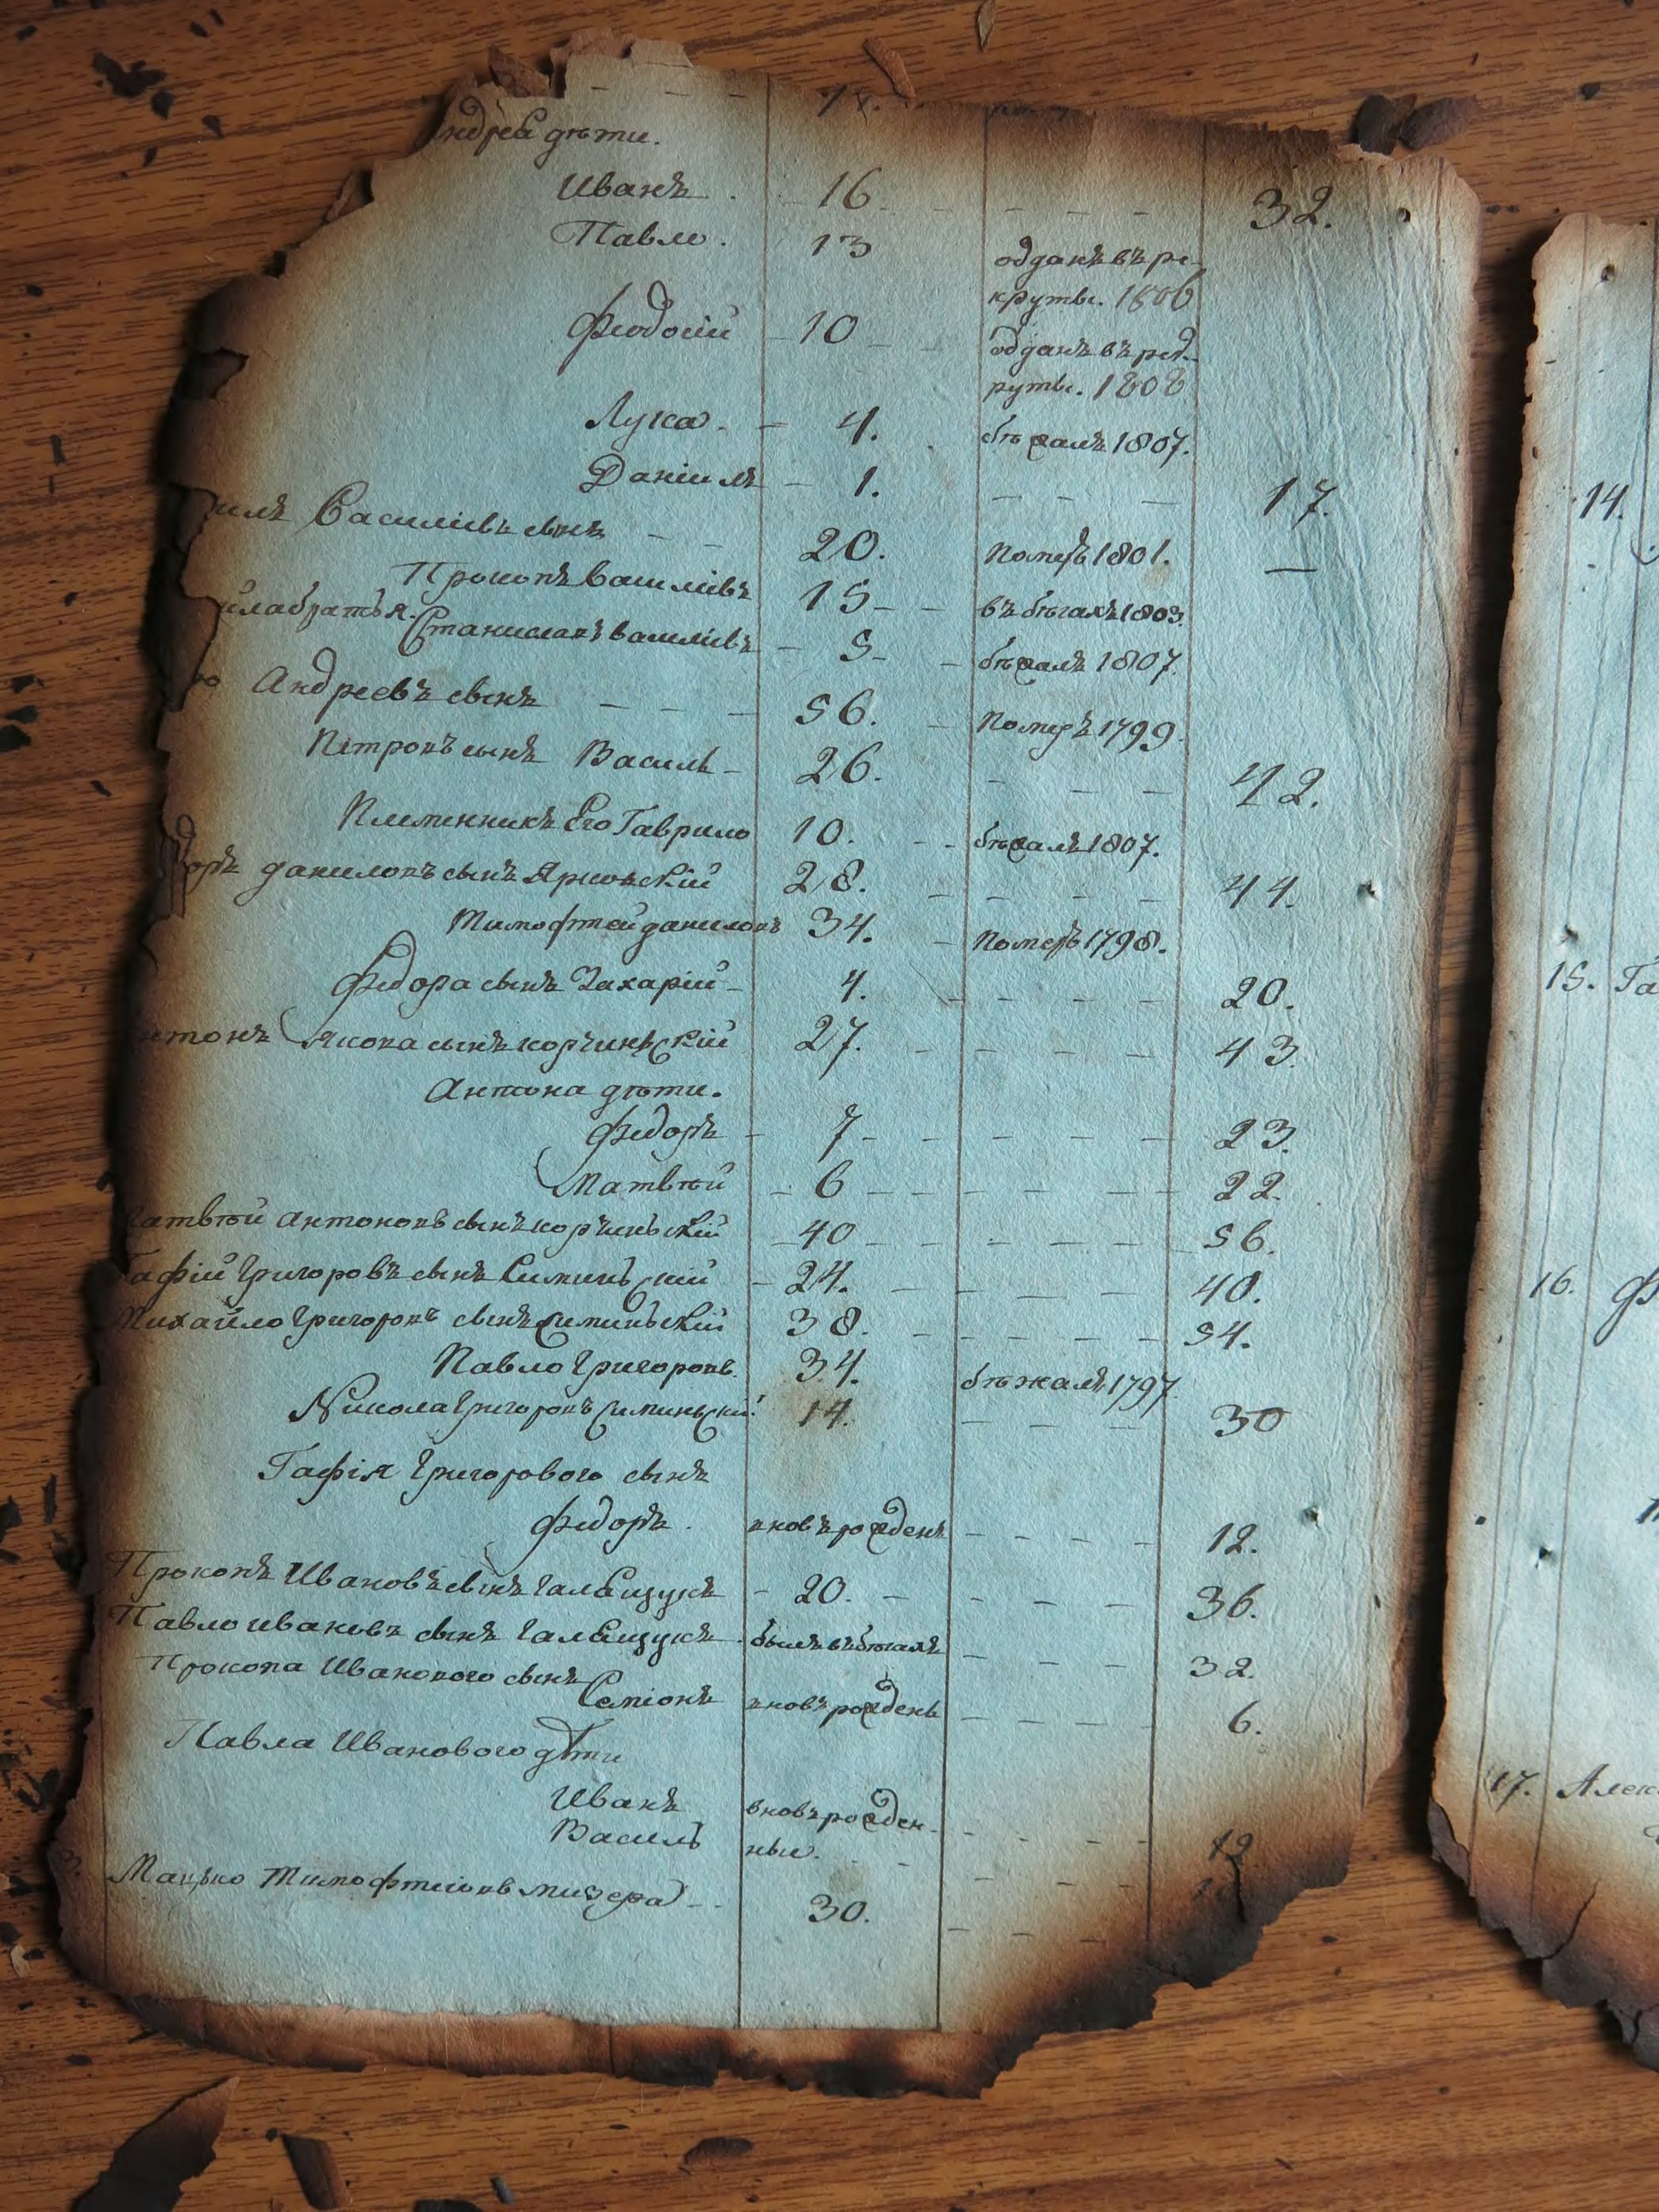 дѣти.
Иванъ. 16 32.
Павло. 13 отданъ въ ре-
круты. 1806
Феодосій 10 отданъ в рек-
руты. 1808
Лука. 4. бѣжалъ 1807.
Даніилъ 1. 17.
Василіевъ сынъ 20. Померъ 1801.
Прокопъ Василіевъ 15 въ бѣгахъ 1803.
братья. Станиславъ Василіевъ 5 бѣжалъ 1807.
Андреевъ сынъ 56. Померъ 1799.
Петровъ сынъ Василь 26. 42.
Племенникъ Его Гаврило 10. бѣжалъ 1807.
Даниловъ сынъ 28. 44.
Тимофтей Даниловъ 34. Померъ 1798.
Федора сынъ Захарій 4. 20.
Якова сынъ Корчинскій 27. 43.
Антона дѣти.
Федоръ 7 23.
Матвѣй 6 22.
Антоновъ сынъ Корчиньскій 40 56.
Григоровъ сынъ Симиньскій 24. 40.
Михайло Григоровъ сынъ Симиньскій 38. 54.
Павло Григоровъ. 34. бѣжалъ 1797.
Никола Григоровъ Симиньскій 14. 30
Гафія Григорового сынъ
Федоръ. вновъ рожденъ 12.
Прокопъ Ивановъ сынъ 20. 36.
Павло Ивановъ сынъ былъ в бѣгахъ 32.
Прокопа Иванового сынъ
Семіонъ вновъ рожденъ 6.
Павла Иванового дѣти
Иванъ вновъ рожден-
Василь ные.
Мацько 30.
14.
15. Га
16. Ф
17. Алек